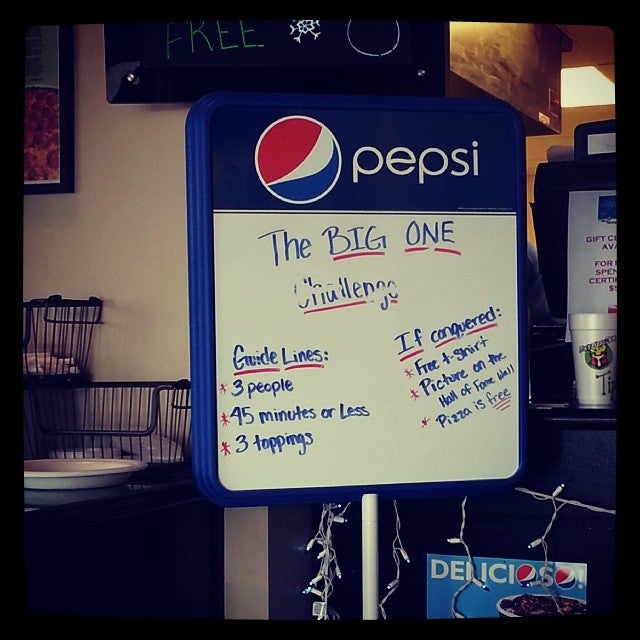 FREE
pepsi
The BIG ONE
Challenge
Guide Lines:
* 3 people
* 45 minutes or Less
* 3 toppings
If conquered:
* Free t-shirt
* Picture on the
Hall of Fame Wall
* Pizza is free
GIFT CE
AVA
FOR
SPEN
CERTIF
$5
DELICIOSO!